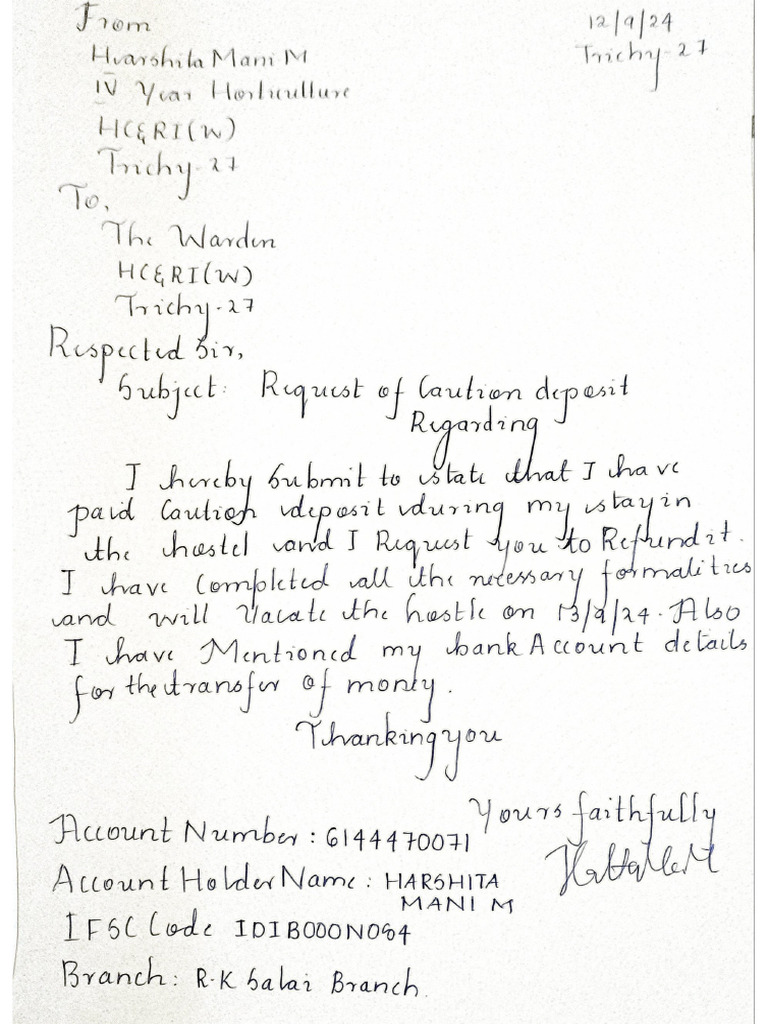 From
12/9/24
Harshita Mani M
Trichy-27
IV Year Horticulture
HC&RI(W)
Trichy-27
To,
The Warden
HC&RI(W)
Trichy-27
Respected Sir,
Subject: Request of Caution deposit
Regarding
I hereby Submit to state that I have
paid Caution deposit during my stay in
the hostel and I Request you to Refund it.
I have Completed all the necessary formalities
and will Vacate the hostle on 13/9/24. Also
I have Mentioned my bank Account details
for the transfer of money.
Thanking you
Yours faithfully
Account Number: 6144470071
Account Holder Name: HARSHITA
MANI M
IFSC Code IDIB000N064
Branch: R.K Salai Branch.